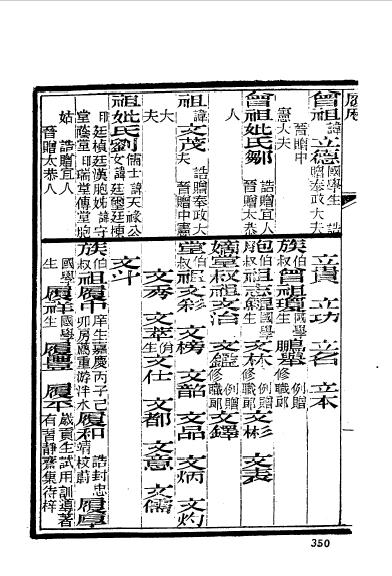 履歷
曾祖諱立德國學生 誥贈奉政大夫 晉贈中
憲大夫
曾祖妣氏鄒 誥贈宜人 晉贈太恭
人
祖諱文茂 誥贈奉政大夫 晉贈中憲
大夫
祖妣氏劉儒士諱天祿公女 諱廷璽廷棟
印廷楨廷漢胞姊 諱守堂蔭堂印瑞堂傳堂胞
姑 誥贈宜人 晉贈太恭人
立貴 立功 立名 立本
族伯叔曾祖瓊國學生 鵬舉例贈修職郎
胞伯叔祖志觀國學生 文林例贈修職郎 文彬 文表
嫡堂叔祖文治 文鑑例贈修職郎 文鐸
堂伯叔祖文彩 文榜 文韶 文品 文炳 文灼
文秀 文萃佾生 文仕 文都 文意 文儒
文斗
族伯叔祖履中庠生嘉慶丙子己卯房薦重游泮水 履和誥封忠靖校尉 履厚
國學生 履祥國學生 履豐 履平歲貢生試用訓導著有習靜齋集待梓
350